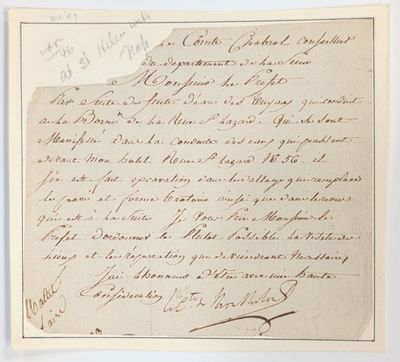 at St Helen with
Nap
Le Comte Chabrol conseiller
du departement de la Seine
Monsieur le Prefet
Par Suite de fuite d'eau des Tuyaux qui conduit
a la Borne de la Rue St Lazard. Qui se sont
Manifestée dans la Conduite des eaux qui passent
devant mon hotel Rue St Lazard No 56. il
s'en est fait excavation dans les
les pavés et forme trotoire ainsi que dans
qui est à la Suite Je Vous Prie Monsieur le
Prefet D'ordonner le Plutot Possible la Visite des
lieux et les reparation qui deviendront Necessaires
J'ai L'honneur D'être avec une haute
Consideration